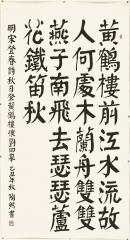 黄鶴樓前江水流故
人何處木蘭舟雙雙
燕子南飛去瑟瑟蘆
花鐵笛秋
明宋登春詩秋日登黄鶴樓懷劉四 年秋 書